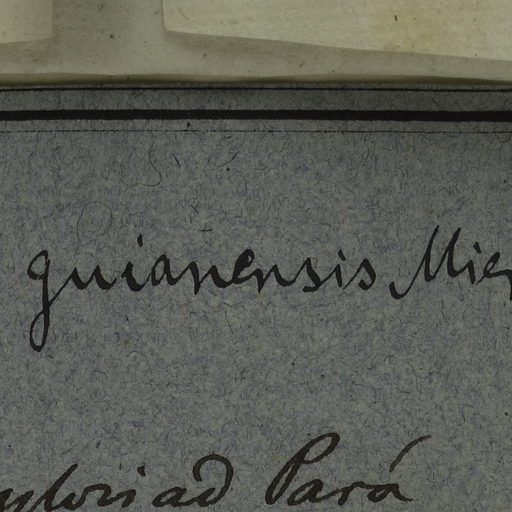 guianensis Mier
ad Pará